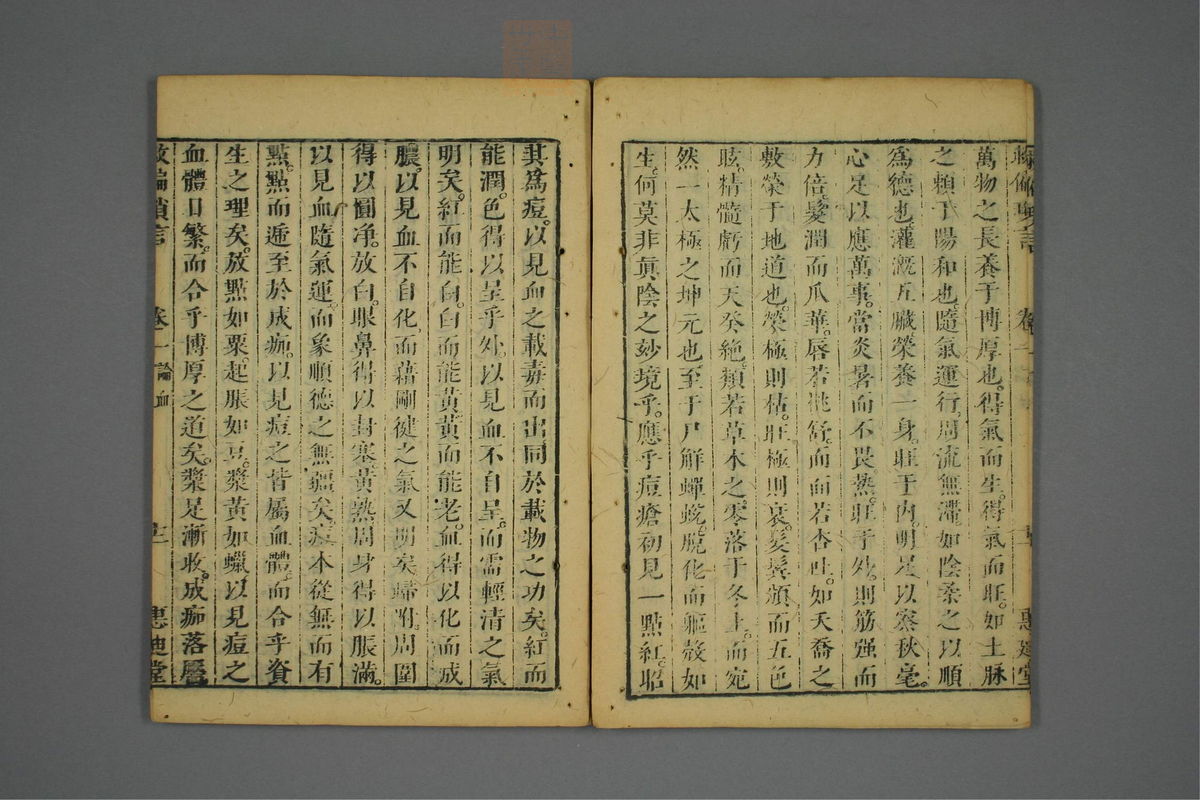 萬物之長養于博厚也。得氣而生。得氣而旺。如土脉
之賴于陽和也。隨氣運行。周流無滯。如陰柔之以順
為德也。灌漑五臟。榮養一身。旺于内。明足以察秋毫。
心足以應萬事。當炎暑而不畏熱。旺于外。則筋强而
力倍。髮潤而爪華。唇若桃舒。而面若杏吐。如夭喬之
敷榮于地道也。榮極則枯。旺極則衰。髮鬓頒而五色
眩。精髓虧而天癸絶。類若草木之。零落于冬上。而宛
然一太極之坤元也。至于尸解蟬蛻。脱化而軀殼如
生。何莫非眞陰之玅境乎。應乎痘瘡初見一點紅。昭
其為痘。以見血之載毒而出。同於載物之功矣。紅而
能潤。色得以呈乎外。以見血不自呈。而需輕清之氣
明矣。紅而能白。白而能黃。黃而能老。血得以化而成
膿。以見血不自化。而藉剛健之氣又明矣。歸附。周圍
得以圓净。放白。眼鼻得以封塞。黃熟。周身得以脹滿。
以見血隨氣運。而象順德之無疆矣。痘本從無而有
點。點而遞至於成痂。以見痘之皆屬血體。而合乎資
生之理矣。放點如粟。起脹如豆。漿黃如蠟。以見痘之
血體日繁。而合乎博厚之道矣。漿足漸收。成痂落靨
救偏瑣言 卷一 論血 惠迪堂